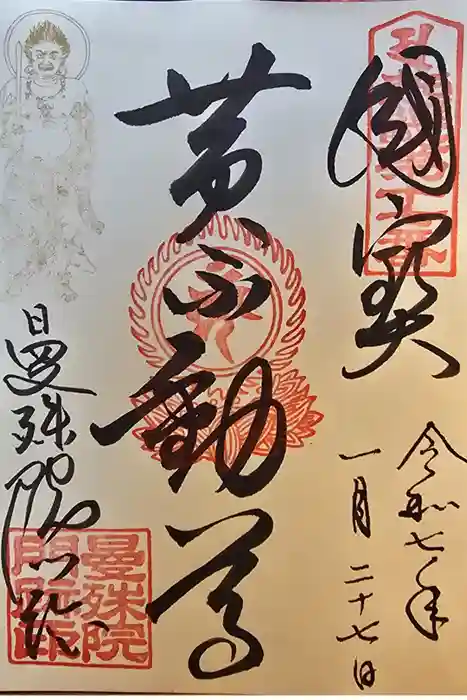 國寶
令和七年
一月二十七日
黄不動尊
曼殊院門跡
曼殊院
門跡印